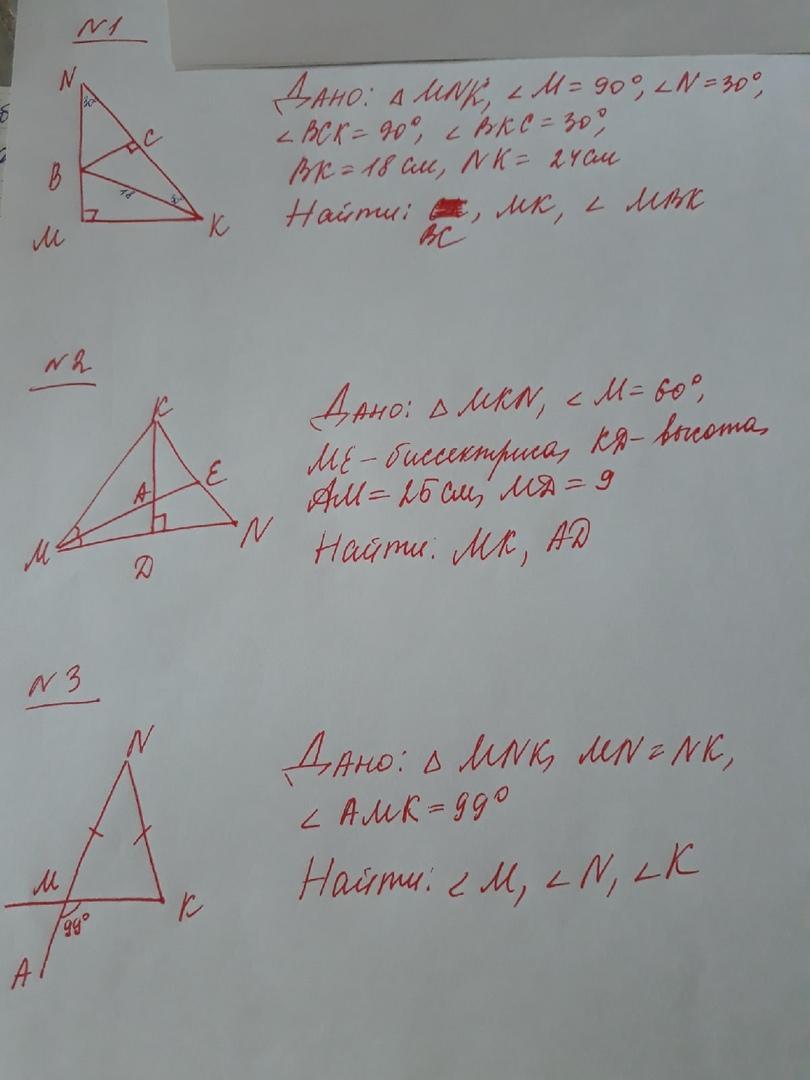 N1
N
30°
C
B
18
30°
M
K
Дано: △ MNK, ∠M = 90°, ∠N = 30°,
∠BCK = 90°, ∠BKC = 30°,
BK = 18 см, NK = 24 см
Найти: , MK, ∠ MBK
BC
N2
K
E
A
M
N
D
Дано: △ MKN, ∠M = 60°,
ME – биссектриса, KD – высота,
AM = 26 см, MD = 9
Найти: MK, AD
N3
N
M
K
99°
A
Дано: △ MNK, MN = NK,
∠ AMK = 99°
Найти: ∠M, ∠N, ∠K